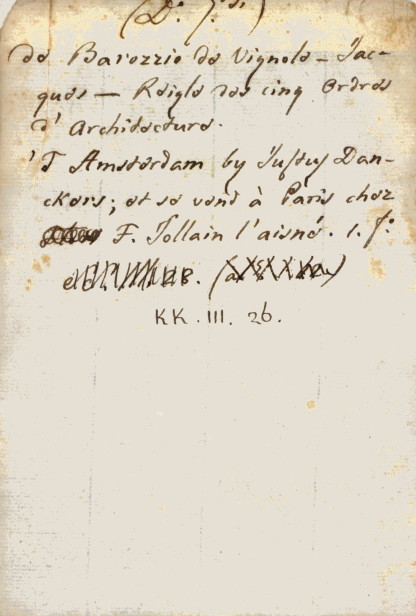 (D: f.si)
de Barozzio de Vignole – Jac-
ques — Reigle des cinq Ordres
d' Architecture.
'T Amsterdam by Justus Dan-
ckers; et se vend à Paris chez
F. Jollain l'aisné. 1. f:
KK. III. 26.